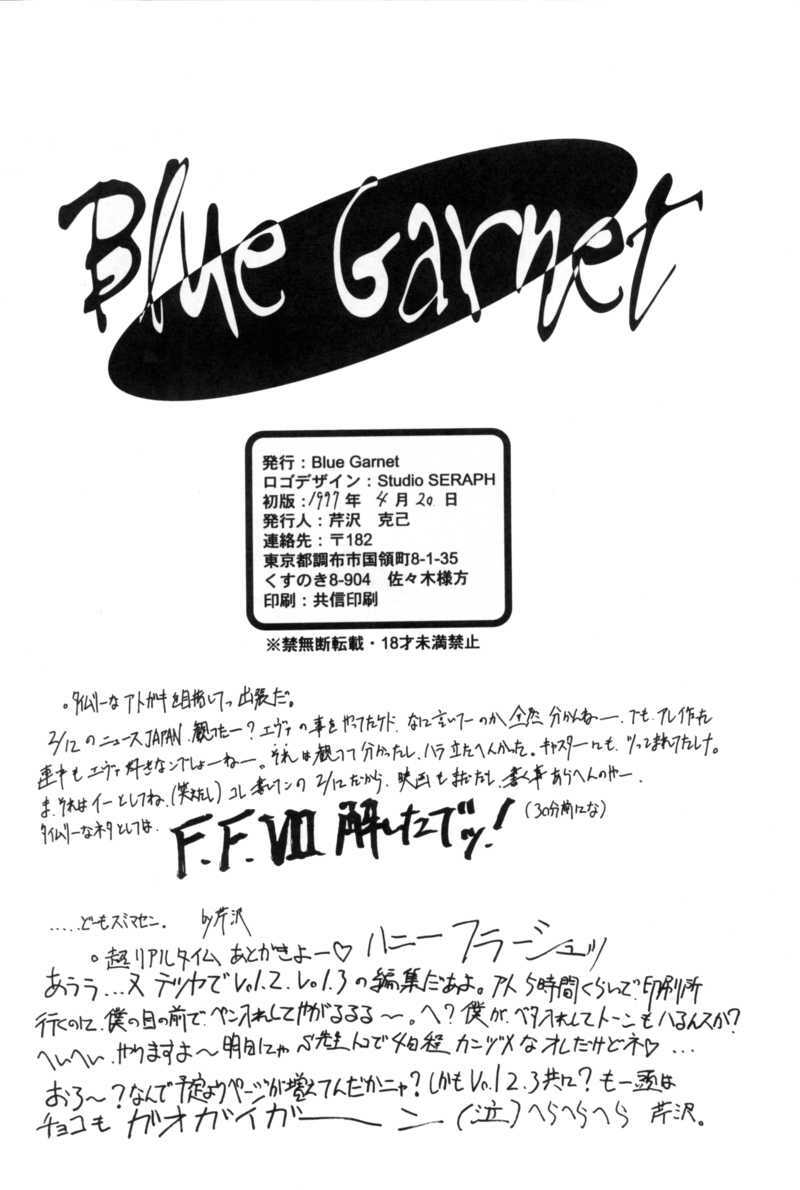 Blue Garnet
発行：Blue Garnet
ロゴデザイン：Studio SERAPH
初版：1997年 4月20日
発行人：芹沢　克己
連絡先：〒182
東京都調布市国領町8-1-35
くすのき8-904　佐々木様方
印刷：共信印刷
※禁無断転載・18才未満禁止
。タイムリーなアトガキを目指してっ出発だ。
2/12のニュースJAPAN、観ったー？エヴァの事をやってたケド、なに言いてーのか全然分かんねー。でも、アレ作った
連中もエヴァ好きなんでしょーねー。それは観てて分かったし、ハラ立たへんかった。キャスターにも、ツッこまれてたしナ。
ま、それはイーとしてね、(笑えたし)コレ書いてンの2/12だから、映画もまだだし、書く事あらへんのやー。
タイムリーなネタとしては、F.F.VII 解したでッ！(30分前にな)
.....どーもスミマセン。 by芹沢
。超リアルタイム、あとがきよー♡ ハニーフラーシュッ
あうう...ヌ デツヤでVol.2、Vol.3の編集だあよ。アト5時間くらいで印刷所
行くのに、僕の目の前で、ペン入れしてやがるるる〜。へ？僕が、ベタ入れしてトーンもハるんスか？
へいへい、やりますよ〜明日にゃS先生んトコで4日程カンヅメなオレだけどネ♡...
おろ〜？なんで予定よりページが増えてんだかニャ？しかもVol.2.3共に？も一頭は
チョコも ガオガイガーーン(泣)へらへらへら 芹沢。